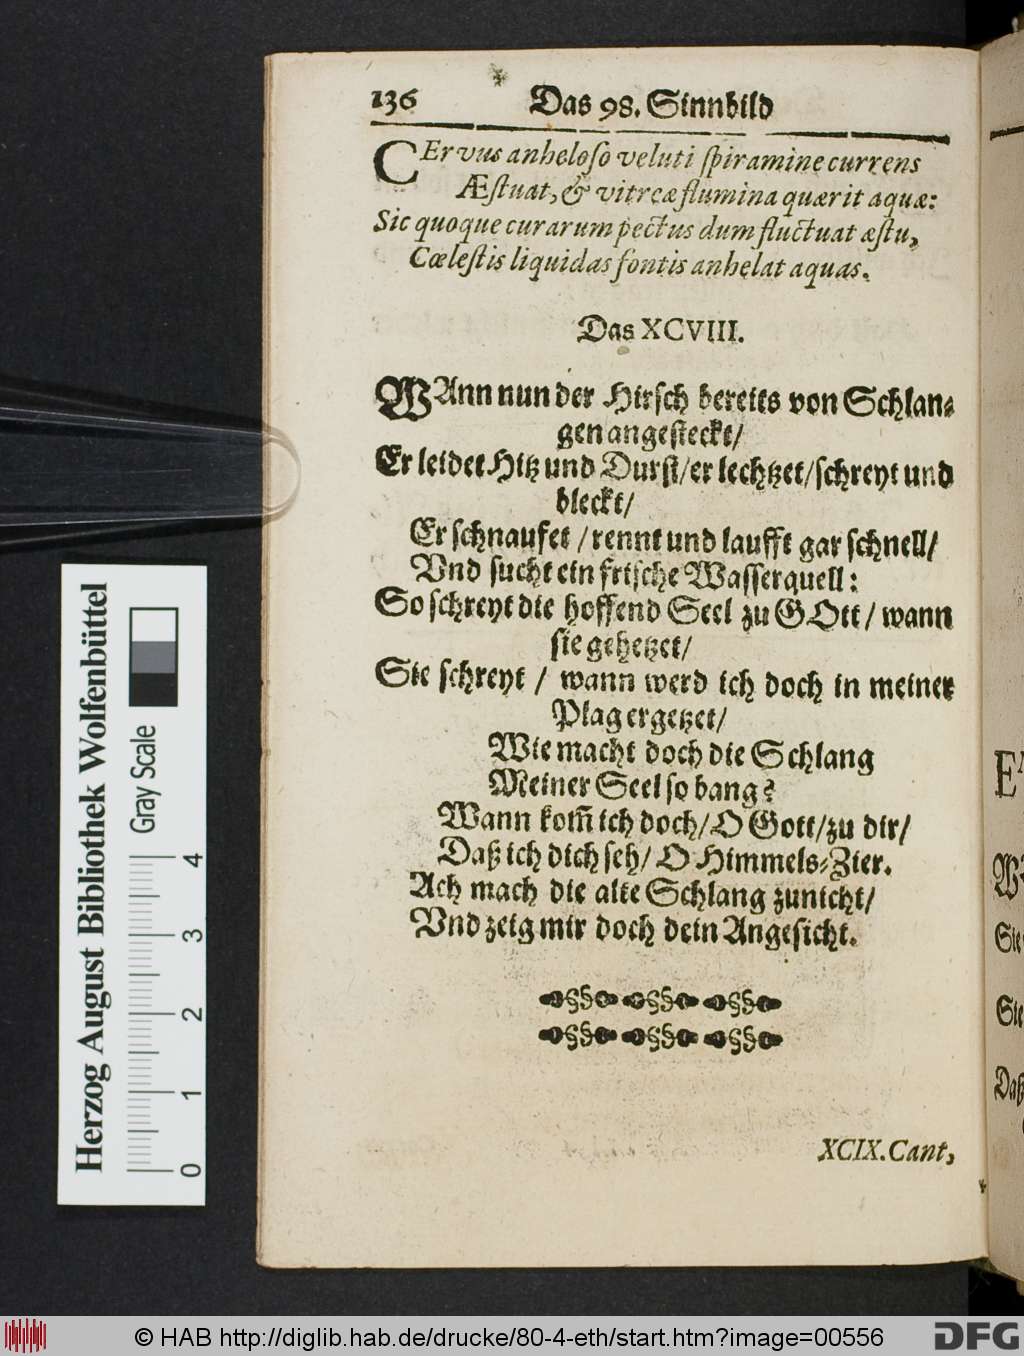 136 Das 98. Sinnbild
CErvus anheloso veluti spiramine currens
Æstuat, & vitreæ flumina quærit aquæ:
Sic quoque curarum pectus dum fluctuat æstu,
Cœlestis liquidas fontis anhelat aquas.
Das XCVIII.
WAnn nun der Hirsch bereits von Schlan⸗
gen angesteckt/
Er leidet Hitz und Durst/er lechtzet/schreyt und
bleckt/
Er schnaufet / rennt und laufft gar schnell/
Vnd sucht ein frische Wasserquell:
So schreyt die hoffend Seel zu GOtt/ wann
sie gehetzet/
Sie schreyt / wann werd ich doch in meiner
Plag ergetzet/
Wie macht doch die Schlang
Meiner Seel so bang?
Wann kom̃ ich doch/O Gott/zu dir/
Daß ich dich seh/ O Himmels⸗Zier.
Ach mach die alte Schlang zunicht/
Vnd zeig mir doch dein Angesicht.
XCIX. Cant,
Herzog August Bibliothek Wolfenbüttel
Gray Scale
0 1 2 3 4
© HAB http://diglib.hab.de/drucke/80-4-eth/start.htm?image=00556
DFG